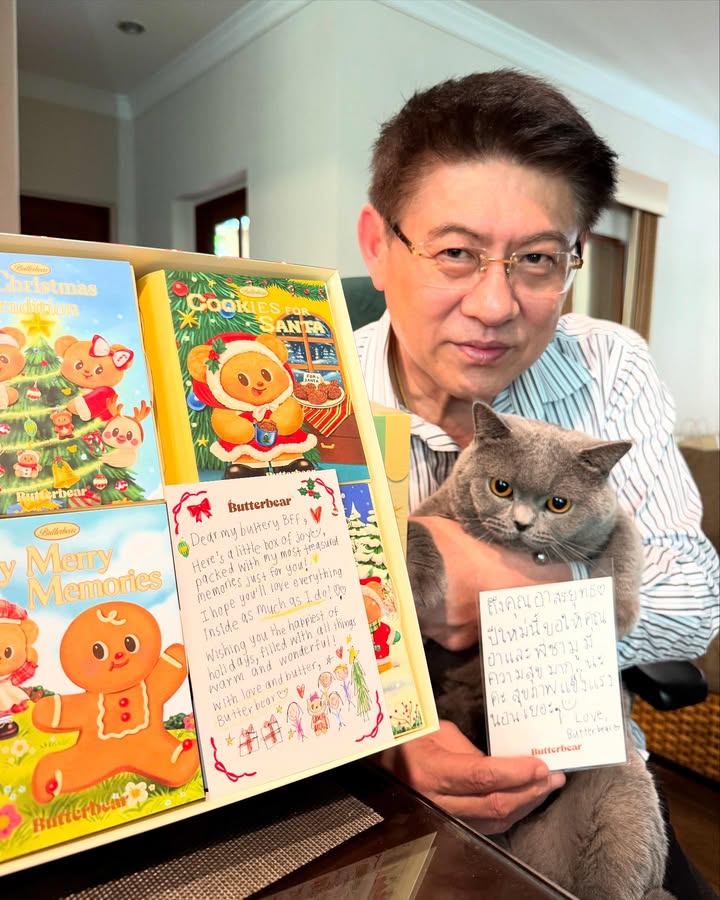 Butterbear
Christmas
Tradition
Butterbear
Butterbear
COOKIES FOR
SANTA
FOR
SANTA
Butterbear
Butterbear
Merry
Memories
Butterbear
Butterbear
Dear my buttery BFF,
Here's a little box of joyey,
packed with my most treasured
memories just for you!
I hope you'll love everything
inside as much as I do!
Wishing you the happiest of
holidays, filled with all things
warm and wonderful!
With love and butter,
Butterbear
ถึงคุณอาสรยุทธ
ปีใหม่นี้ ขอให้คุณ
อาและพี่ชามู มี
ความสุขมากๆ นะ
คะ สุขภาพแข็งแรง
นอนเยอะๆ
Love,
Butterbear
Butterbear